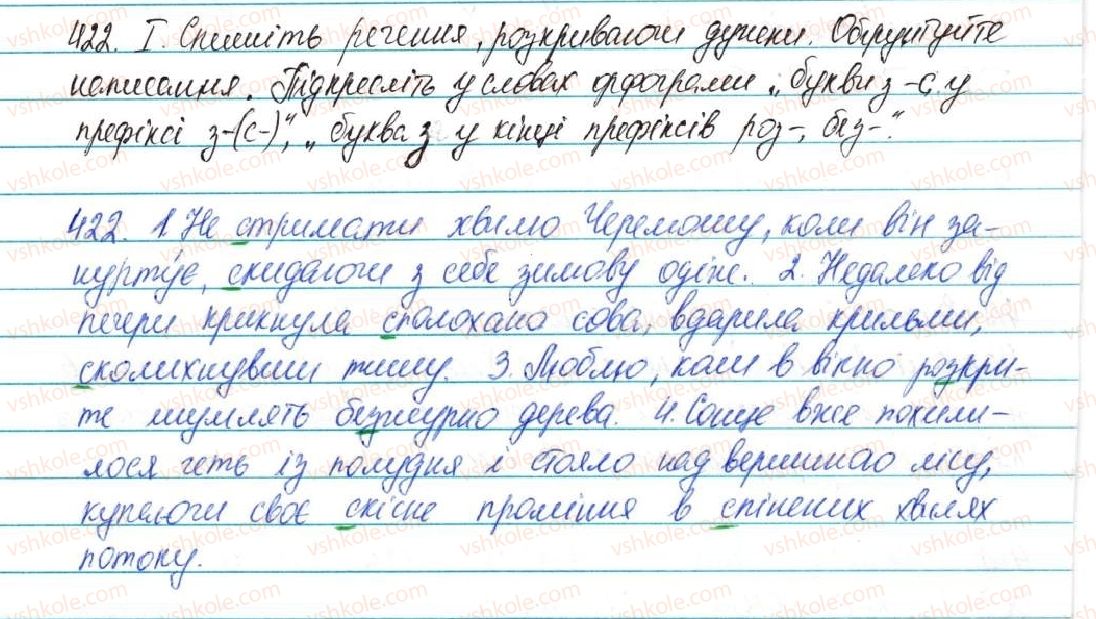 422. I. Спишіть речення, розкриваючи дужки. Обґрунтуйте
написання. Підкресліть у словах орфограми „букви з -с у
префіксі з-(с-)", „буква з у кінці префіксів роз-, без-".
422. 1. Не стримати хвилю Черемошу, коли він за-
нуртує, скидаючи з себе зимову одіж. 2. Недалеко від
печери крикнула сполохано сова, вдарила крильми,
сколихнувши тишу. 3. Люблю, коли в вікно розкри-
те шумлять безжурно дерева. 4. Сонце вже похили-
лося геть із полудня і стояло над вершиною лісу,
купаючи своє скісне проміння в спінених хвилях
потоку.